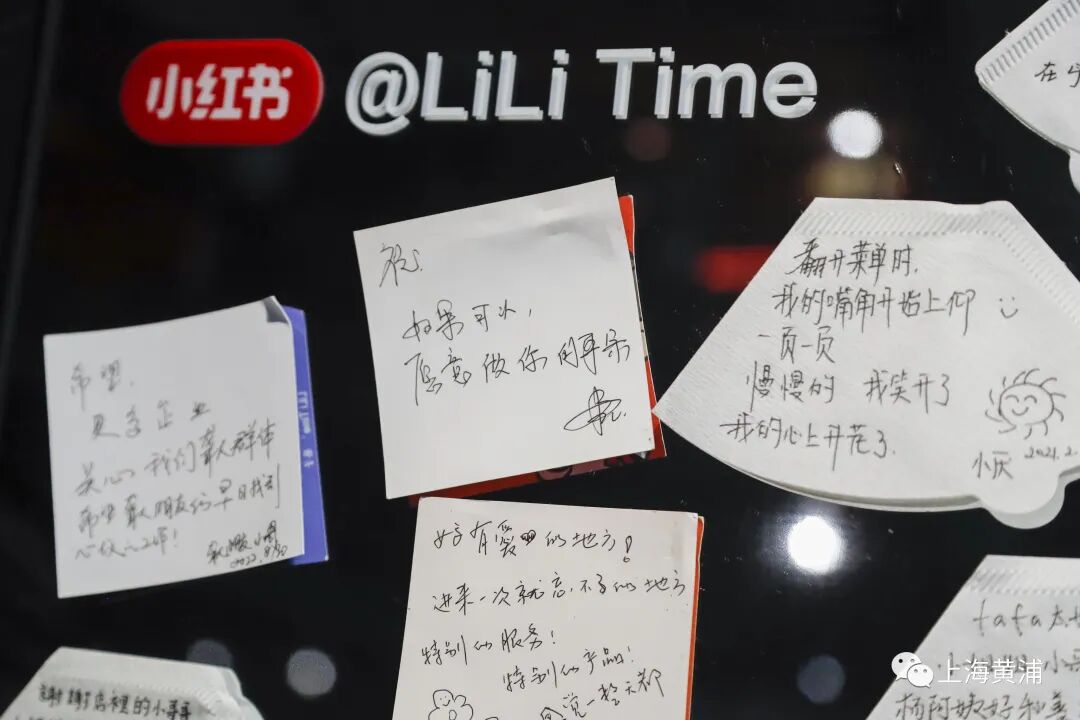 小红书 @LiLi Time
在
祝.
如果可以,
愿意做你的耳朵
翻开菜单时,
我的嘴角开始上仰
一页一页
慢慢的 我笑开了
我的心上开花了.
小灰 2021.2.
希望,
更多企业
关心我们聋人群体
希望聋人朋友们早日找到
心仪的工作!
2022.8/30
好有爱的地方!
进来一次就忘不了的地方
特别的服务!
特别的产品!
感觉一整天都
店里的小哥哥
fafa太
小哥
杨阿姨好和善
上海黄浦